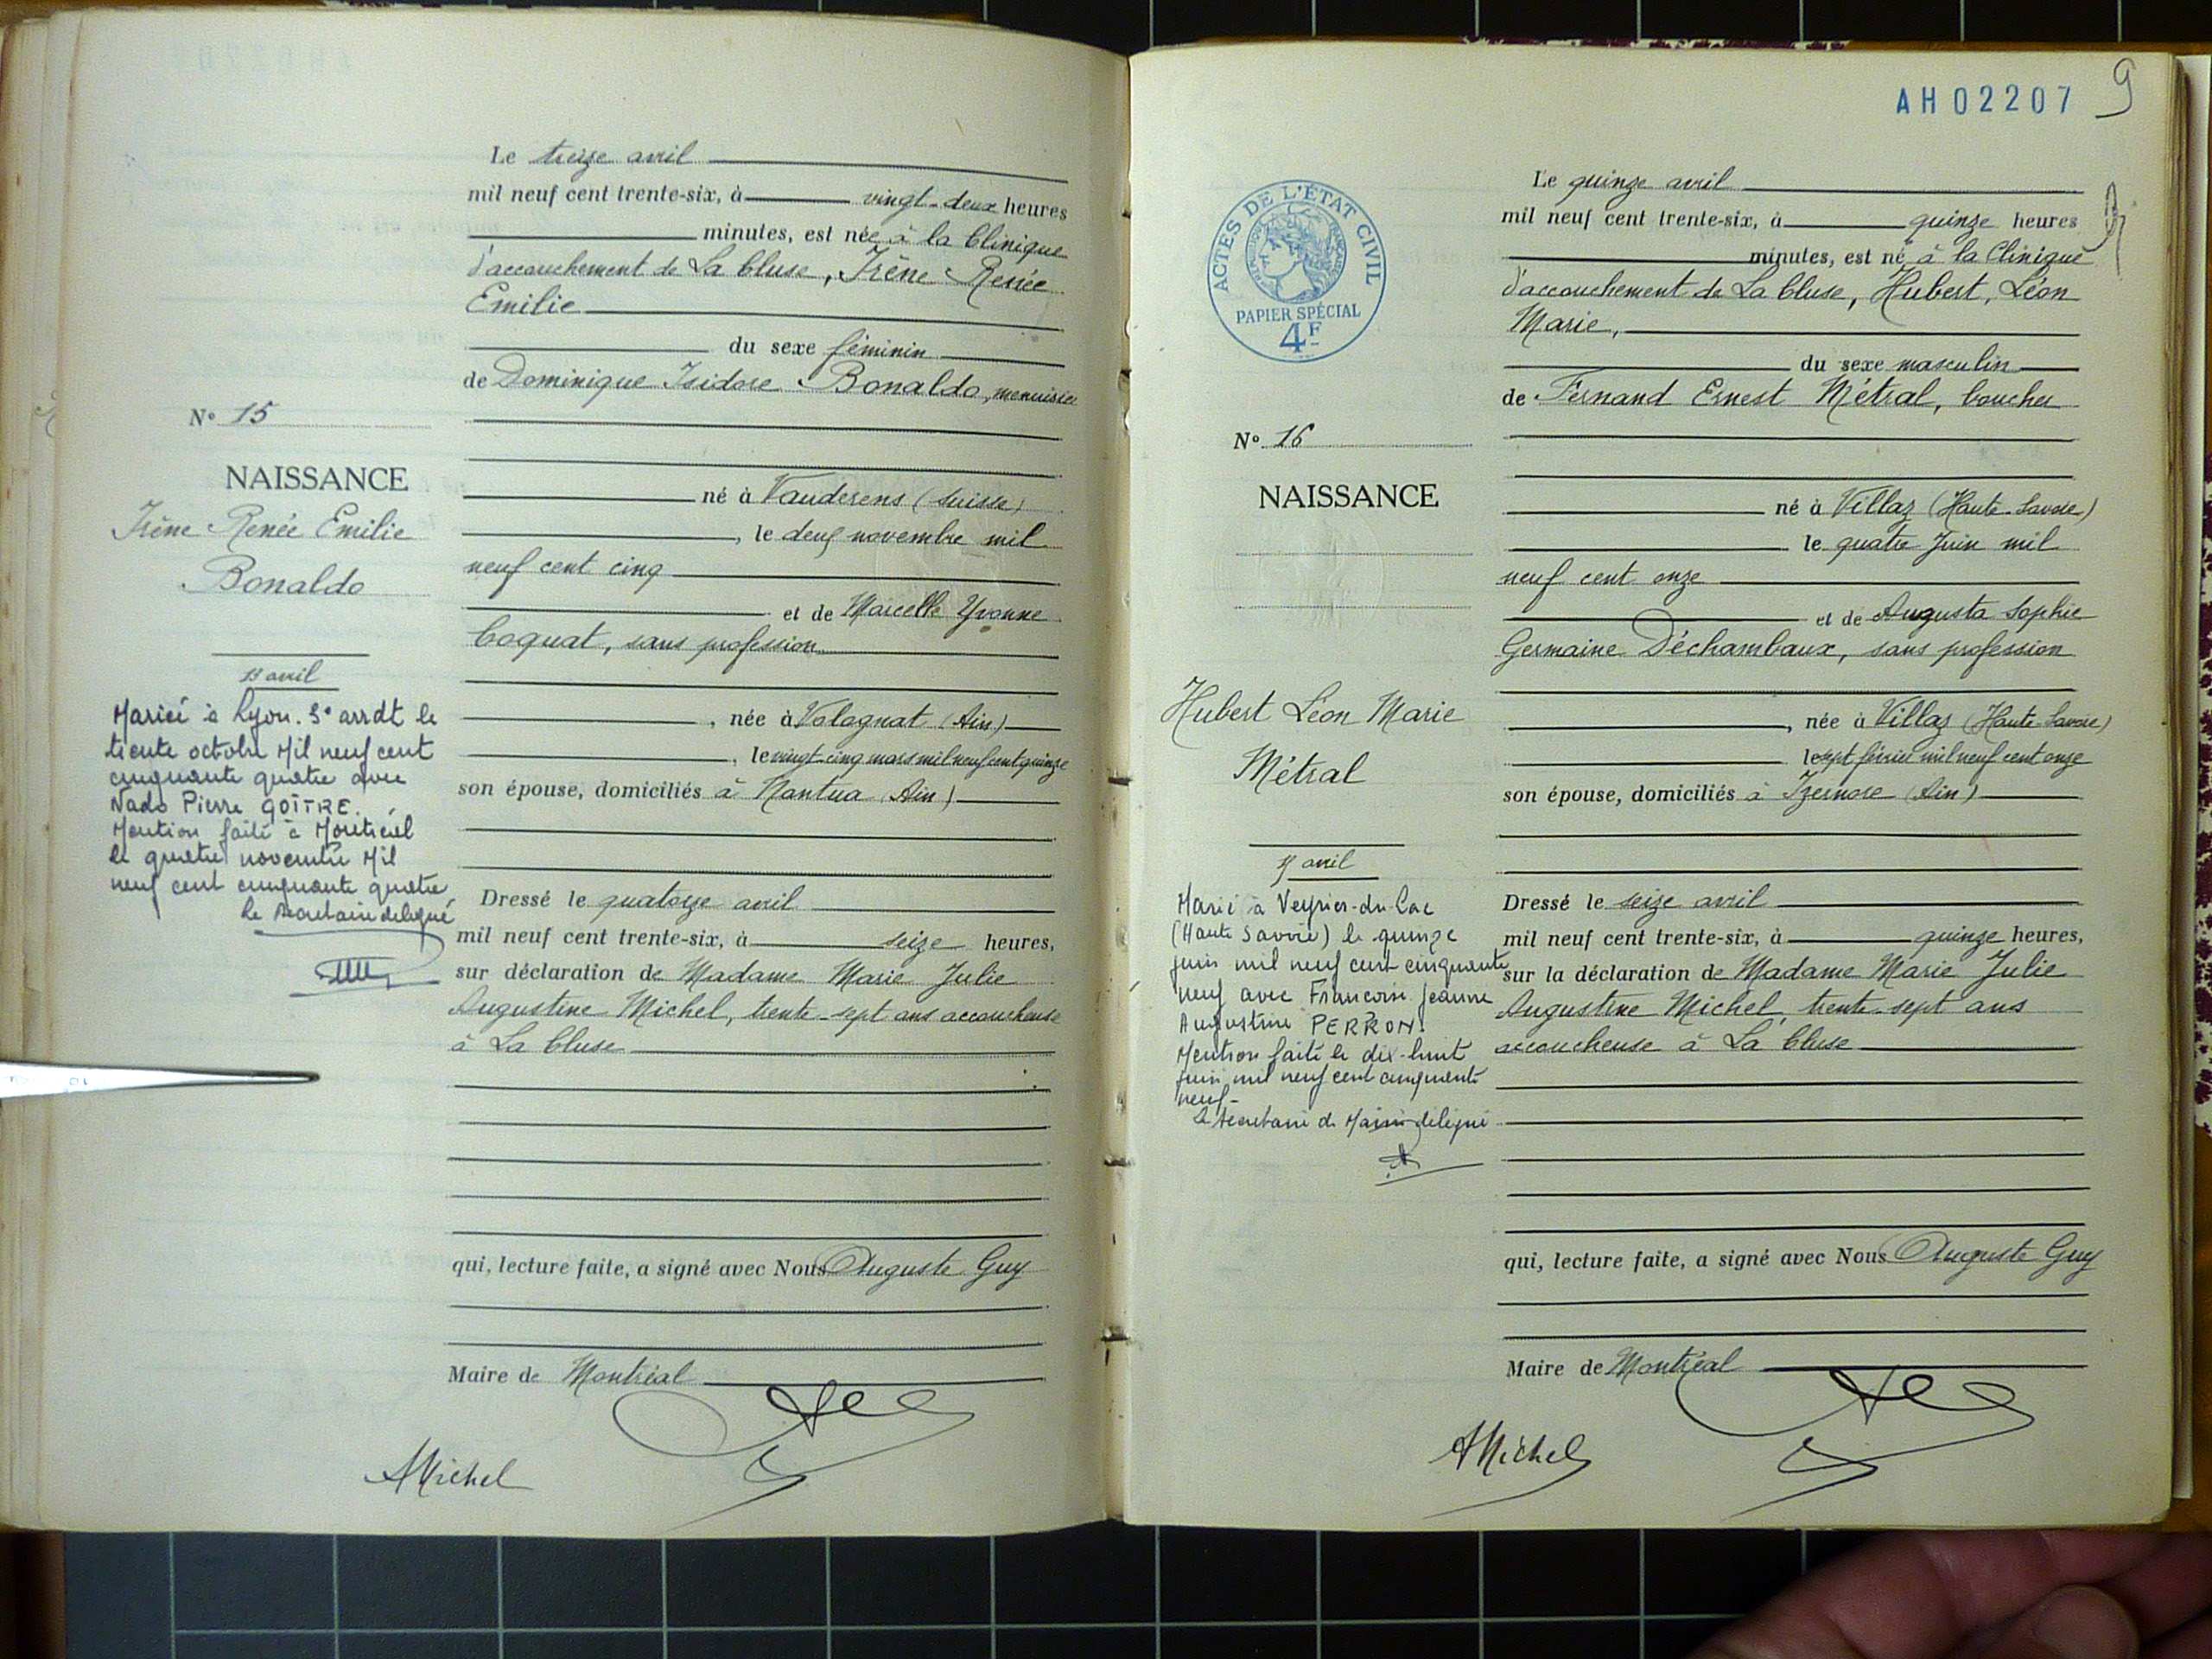 Le treize avril
mil neuf cent trente-six, à vingt-deux heures
minutes, est née à la Clinique
d'accouchement de La Cluse, Irène Renée
Emilie
du sexe féminin
de Dominique Isidore Bonaldo, menuisier
N° 15
NAISSANCE
Irène Renée Emilie
Bonaldo
né à Vauderens (Suisse)
, le deux novembre mil
neuf cent cinq
et de Marcelle Yvonne
Coquat, sans profession
, née à Volognat (Ain)
, le vingt-cinq mars mil neuf cent quinze
son épouse, domiciliés à Nantua (Ain)
13 avril
Mariée à Lyon. 3e arrdt le
trente octobre Mil neuf cent
cinquante quatre avec
Nado Pierre GOÏTRE.
Mention faite à Montréal
le quatre novembre Mil
neuf cent cinquante quatre
le secrétaire délégué
Dressé le quatorze avril
mil neuf cent trente-six, à seize heures,
sur déclaration de Madame Marie Julie
Augustine Michel, trente-sept ans accoucheuse
à La Cluse
qui, lecture faite, a signé avec Nous Auguste Guy
Maire de Montréal
AMichel
AH02207 9
ACTES DE L'ÉTAT CIVIL
PAPIER SPÉCIAL
4F
Le quinze avril
mil neuf cent trente-six, à quinze heures
minutes, est né à la Clinique
d'accouchement de La Cluse, Hubert, Léon
Marie,
du sexe masculin
de Fernand Ernest Métral, boucher
N° 16
NAISSANCE
né à Villaz (Haute-Savoie)
le quatre Juin mil
neuf cent onze
et de Augusta Sophie
Germaine Déchambaux, sans profession
Hubert Léon Marie
Métral
, née à Villaz (Haute-Savoie)
le sept février mil neuf cent onze
son épouse, domiciliés à Izernore (Ain)
15 avril
Marié à Veyrier-du-Lac
(Haute Savoie) le quinze
juin mil neuf cent cinquante
neuf avec Francoise Jeanne
Augustine PERRON.
Mention faite le dix-huit
juin mil neuf cent cinquante
neuf -
Le secrétaire de Mairie délégué
Dressé le seize avril
mil neuf cent trente-six, à quinze heures,
sur la déclaration de Madame Marie Julie
Augustine Michel, trente-sept ans
accoucheuse à La Cluse
qui, lecture faite, a signé avec Nous Auguste Guy
Maire de Montréal
AMichel